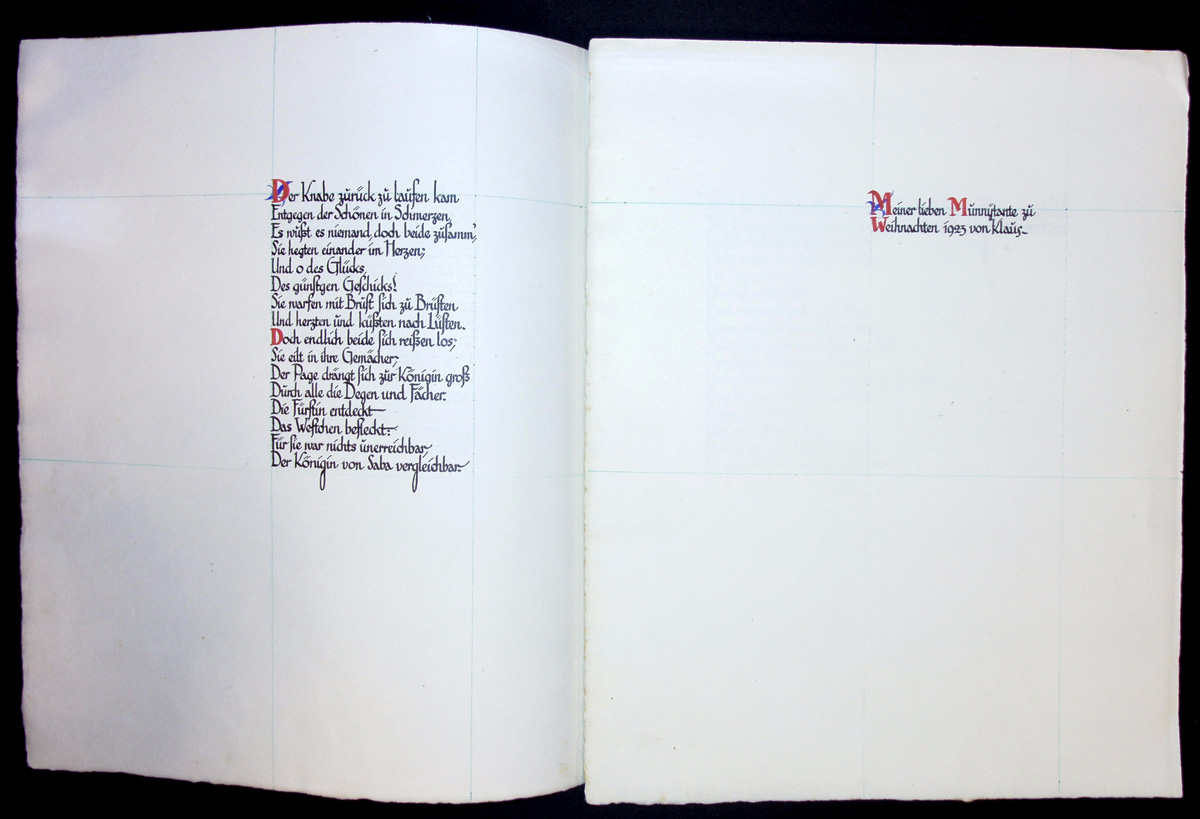 Der Knabe zurück zu laufen kam
Entgegen der Schönen in Schmerzen,
Es wüßt es niemand, doch beide zusamm',
Sie hegten einander im Herzen;
Und o des Glücks,
Des günstgen Geschicks!
Sie warfen mit Brust sich zu Brüsten
Und herzten und küßten nach Lüsten.
Doch endlich beide sich reißen los;
Sie eilt in ihre Gemächer;
Der Page drängt sich zur Königin groß
Durch alle die Degen und Fächer.
Die Fürstin entdeckt
Das Westchen befleckt:
Für sie war nichts unerreichbar,
Der Königin von Saba vergleichbar.
Meiner lieben Munnytante zu
Weihnachten 1923 von Klaus.